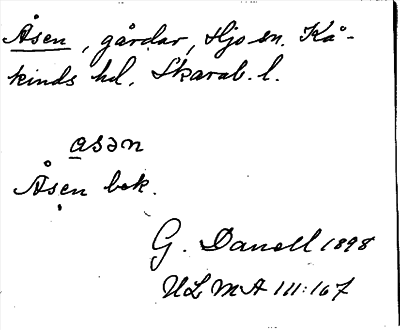 Åsen, gårdar, Hjo sn. Kå-
kinds hd. Skarab. l.
åsən
Åsen bek.
G. Danell 1898
ULMA 111:167